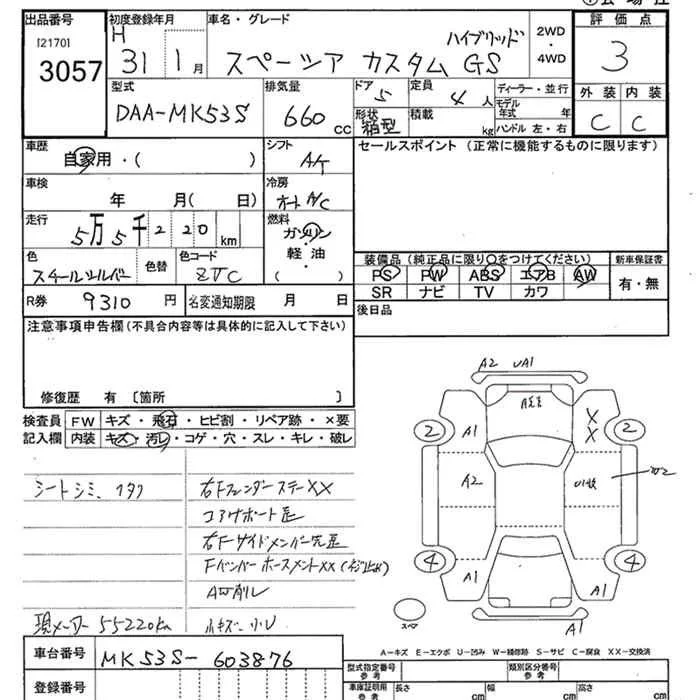 出品番号
[2170]
3057
初度登録年月
H 31 1 月
車名・グレード
スペーシア カスタム ハイブリッド GS
2WD
・
4WD
評価点
3
外装 内装
C C
型式
DAA-MK53S
排気量
660 cc
ドア
5
形状
箱型
定員
4 人
積載
kg
ディーラー・並行
モデル年式 年
ハンドル 左・右
車歴
自家用・( )
シフト
AT
セールスポイント (正常に機能するものに限ります)
車検
年 月( 日)
冷房
オートA/C
走行
5万5千220 km
燃料
ガソリン
・
軽油
( )
色
スチールシルバー
色替
色コード
ZVC
装備品 (純正品に限り○をつけてください)
PS PW ABS エアB AW
SR ナビ TV カワ
新車保証書
有・無
R券 9310 円
名変通知期限 月 日
後日品
注意事項申告欄 (不具合内容等は具体的に記入して下さい)
修復歴 有 〔箇所 〕
検査員記入欄
FW キズ・飛石・ヒビ割・リペア跡・×要
内装 キズ・汚レ・コゲ・穴・スレ・キレ・破レ
シートシミ、
右FフェンダーステーXX
コアサポート
右Fサイドメンバー先
FバンパーホースメントXX
A 削レ
小キズ・小U
現メーター 55220km
A2 UA1
X
X
2 2
A1
A2
4 4
A1 A1
スペア
A1
A-キズ E-エクボ U-凹み W-補修跡 S-サビ C-腐食 XX-交換済
車台番号
MK53S-603876
登録番号
型式指定番号
参考
類別区分番号
参考
車庫証明用
参考
長さ cm
幅 cm
高さ cm